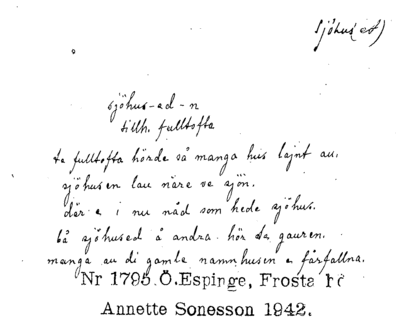 sjöhus(et)
sjöhus-ed-n
tillh. fulltofta
te fulltofta hörde så manga hus lajnt au.
sjöhusen lau näre ve sjön.
där e i nu nåd som hede sjöhus.
bå sjöhused å andra hör te gauren.
manga au di gamle namnhusen e fårfallna.
Nr 1795. Ö.Espinge, Frosta
Annette Sonesson 1942.